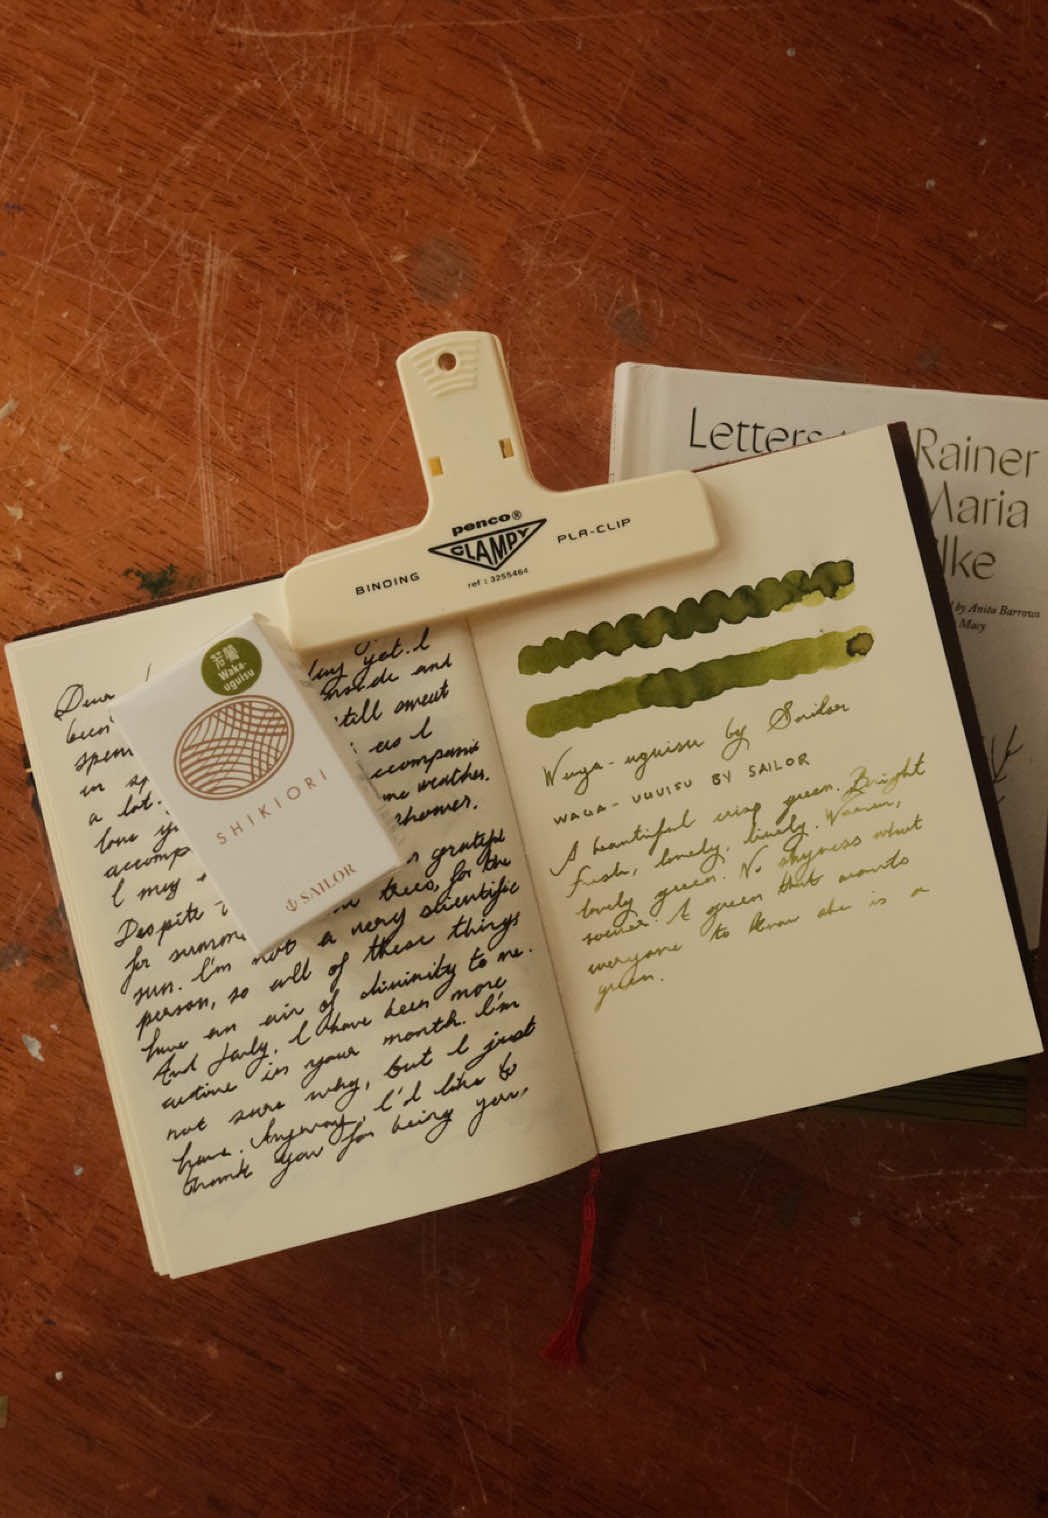 Letters to Rainer
Maria
by Anita Barrows
Macy
penco®
CLAMPY
BINDING
PLA-CLIP
ref : 3255464
若鶯
Waka-
uguisu
SHIKIORI
SAILOR
Dear
yet. I
inside and
spen still sweat
in as I
a lot. accompanie
love me weather.
accomp shower.
I may
Despite grateful
for summer trees, for the
sun. I'm not a very scientific
person, so all of these things
have an air of divinity to me.
And July, I have been more
active in your month. I'm
not sure why, but I just
have. Anyway, I'd like to
thank you for being you,
Waga-uguisu by Sailor
WAGA-UGUISU BY SAILOR
A beautiful crisp green. Bright
fresh, lovely, lively. Warm,
lovely green. No shyness what
soever. A green that wants
everyone to know she is a
green.